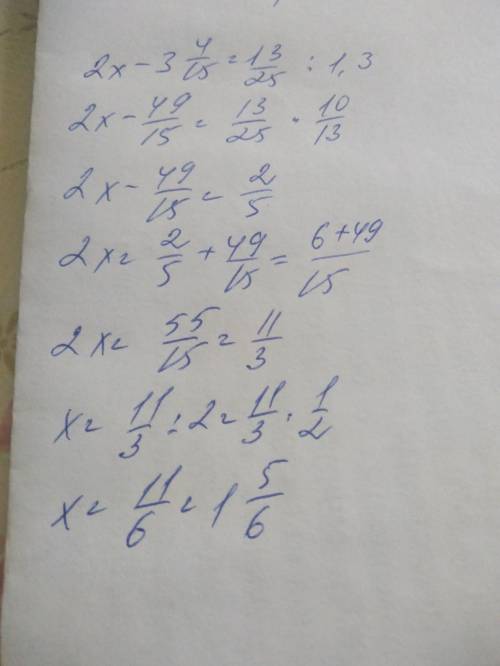 2x - 3 4/15 = 13/25 : 1,3
2x - 49/15 = 13/25 · 10/13
2x - 49/15 = 2/5
2x = 2/5 + 49/15 = (6+49)/15
2x = 55/15 = 11/3
x = 11/3 : 2 = 11/3 · 1/2
x = 11/6 = 1 5/6